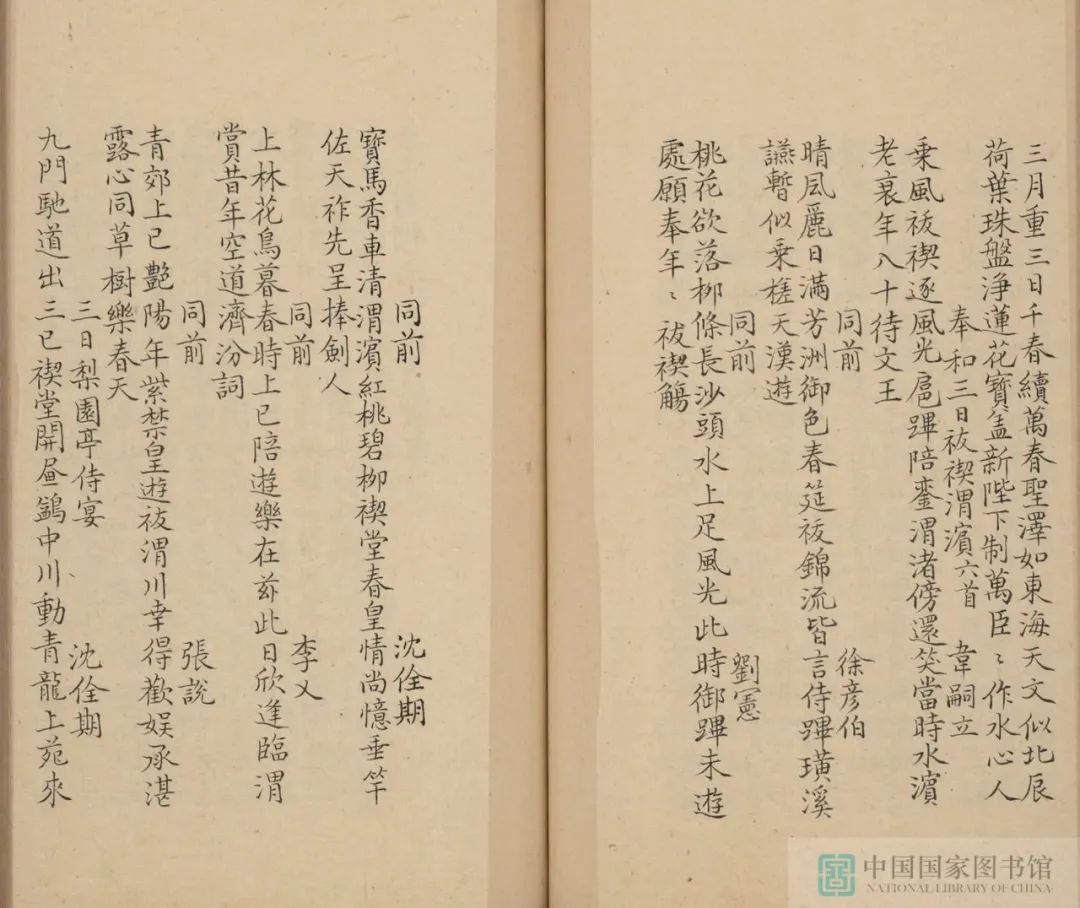 三月重三日千春續萬春聖澤如東海天文似北辰
荷葉珠盤浄蓮花寶盖新陛下制萬臣〻作水心人
奉和三日祓禊渭濱六首　韋嗣立
乗風祓禊逐風光扈蹕陪鑾渭渚傍還笑當時水濱
老衰年八十待文王
同前　徐彦伯
晴風麗日滿芳洲御色春筵祓錦流皆言侍蹕璜溪
讌暫似乗槎天漢遊
同前　劉憲
桃花欲落柳條長沙頭水上足風光此時御蹕未遊
處願奉年〻祓禊觴
同前　沈佺期
寶馬香車清渭濱紅桃碧柳禊堂春皇情尚憶垂竿
佐天祚先呈捧劍人
同前　李乂
上林花鳥暮春時上巳陪遊樂在茲此日欣逢臨渭
賞昔年空道濟汾詞
同前　張説
青郊上巳艶陽年紫禁皇遊祓渭川幸得歡娛承湛
露心同草樹樂春天
三日梨園亭侍宴　沈佺期
九門馳道出三巳禊堂開昼鷁中川動青龍上苑來
中国国家图书馆
NATIONAL LIBRARY OF CHINA